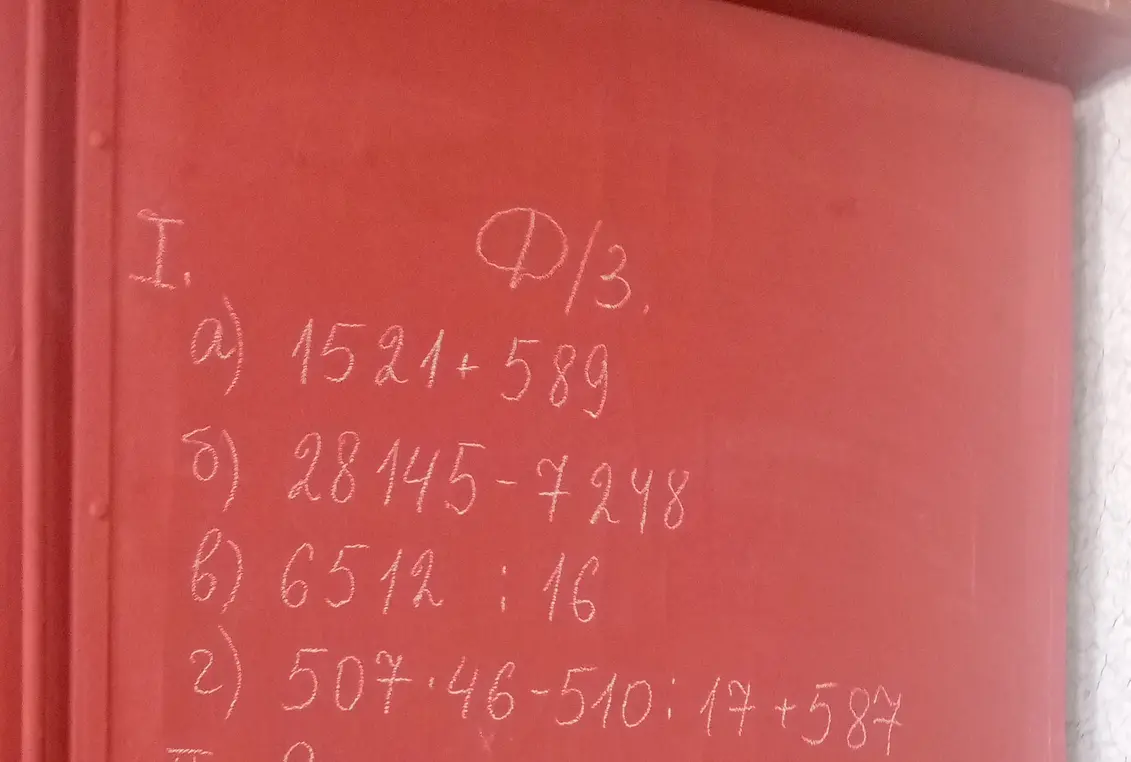 I. Д/З.
а) 1521 + 589
б) 28145 - 7248
в) 6512 : 16
г) 507 · 46 - 510 : 17 + 587